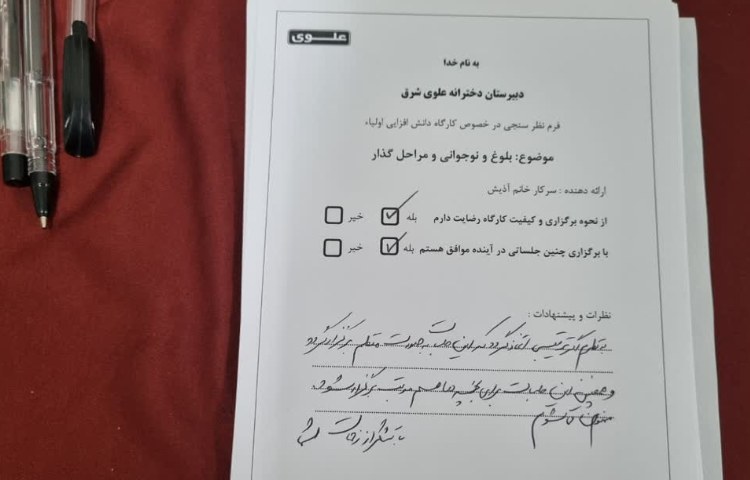 علوی
به نام خدا
دبیرستان دخترانه علوی شرق
فرم نظر سنجی در خصوص کارگاه دانش افزایی اولیاء
موضوع: بلوغ و نوجوانی و مراحل گذار
ارائه دهنده : سرکار خانم آذیش
از نحوه برگزاری و کیفیت کارگاه رضایت دارم بله خیر
با برگزاری چنین جلساتی در آینده موافق هستم بله خیر
نظرات و پیشنهادات :
بنظرم اگر ترتیبی اتخاذ گردد که این جلسات به صورت منظم برگزار گردد
و همچنین این جلسات برای بچه ها هم مرتب برگزار شود
ممنون
با تشکر از زحمات شما